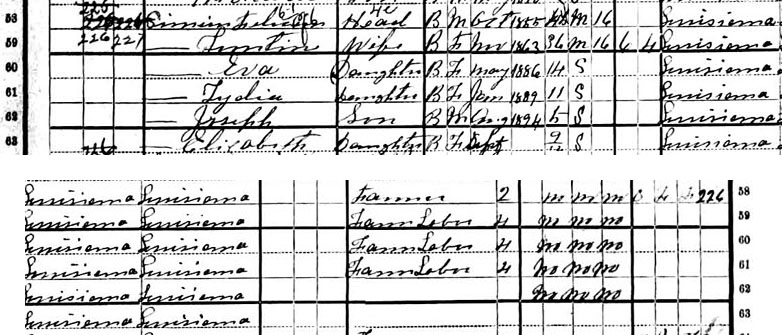 58 Head B M Oct 1855 M 16 Louisiana
59 226 227 — Wife B F 1863 36 M 16 6 4 Louisiana
60 — Eva Daughter B F May 1886 14 S Louisiana
61 — Lydia Daughter B F Jan 1889 11 S Louisiana
62 — Joseph Son B M Aug 1894 5 S Louisiana
63 — Elizabeth Daughter B F Sept Louisiana
Louisiana Louisiana Farmer 2 no no no 226 58
Louisiana Louisiana Farm Labor 4 no no no 59
Louisiana Louisiana Farm Labor 4 no no no 60
Louisiana Louisiana Farm Labor 4 no no no 61
Louisiana Louisiana no no no 62
Louisiana Louisiana 63